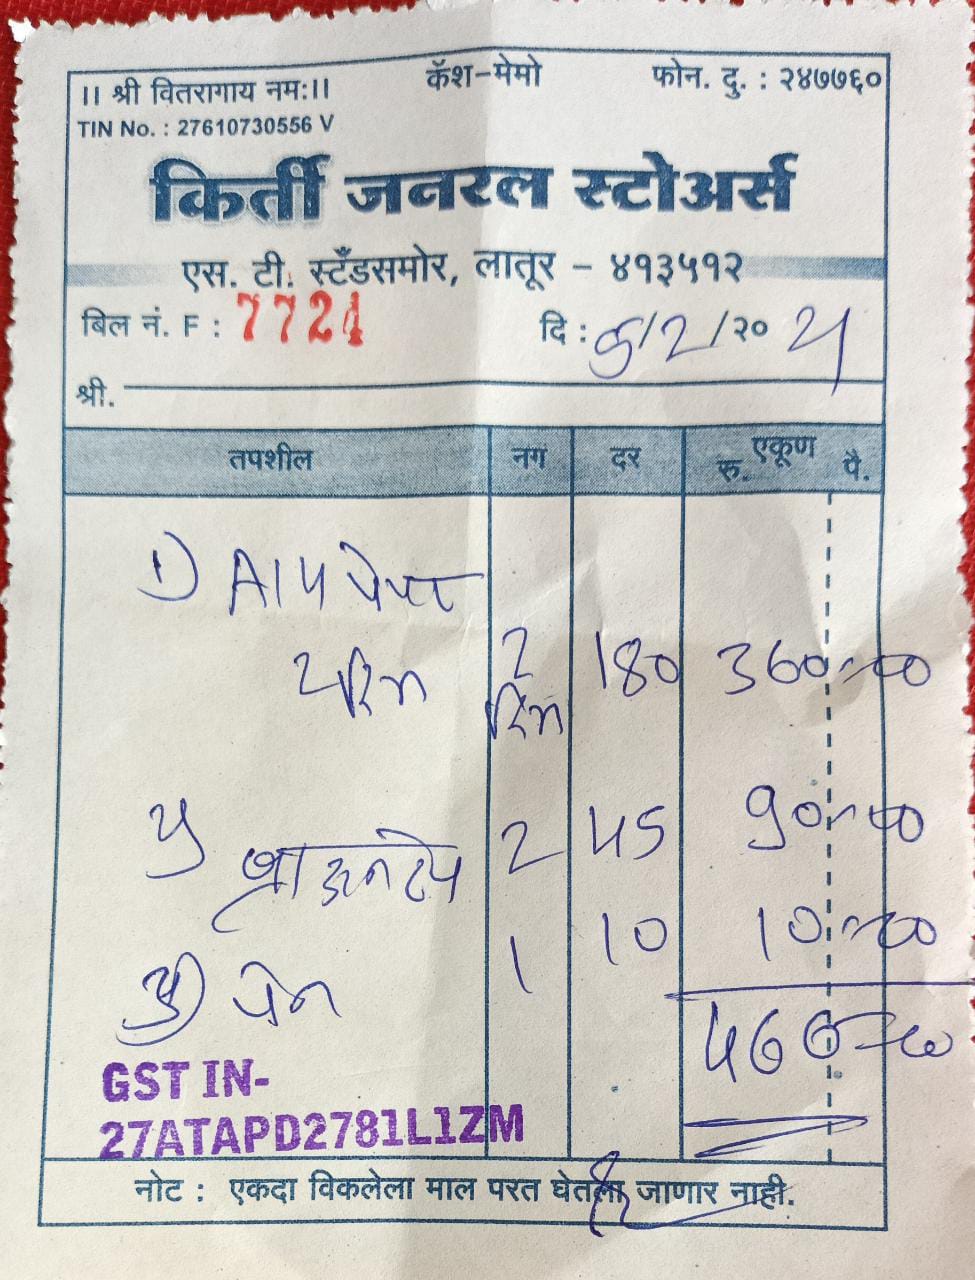 ।। श्री वितरागाय नम:।। कॅश-मेमो फोन. दु. : २४७७६०
TIN No. : 27610730556 V
किर्ती जनरल स्टोअर्स
एस. टी. स्टँडसमोर, लातूर - ४१३५१२
बिल नं. F : 7724 दि : /2/२० 21
श्री.
तपशील नग दर एकूण
रु. पै.
1) A14 पेपर
2 रिम 2 180 360=00
रिम
2) ब्राऊन टेप 2 45 90=00
3) पेन 1 10 10=00
460=00
GST IN-
27ATAPD2781L1ZM
नोट : एकदा विकलेला माल परत घेतला जाणार नाही.